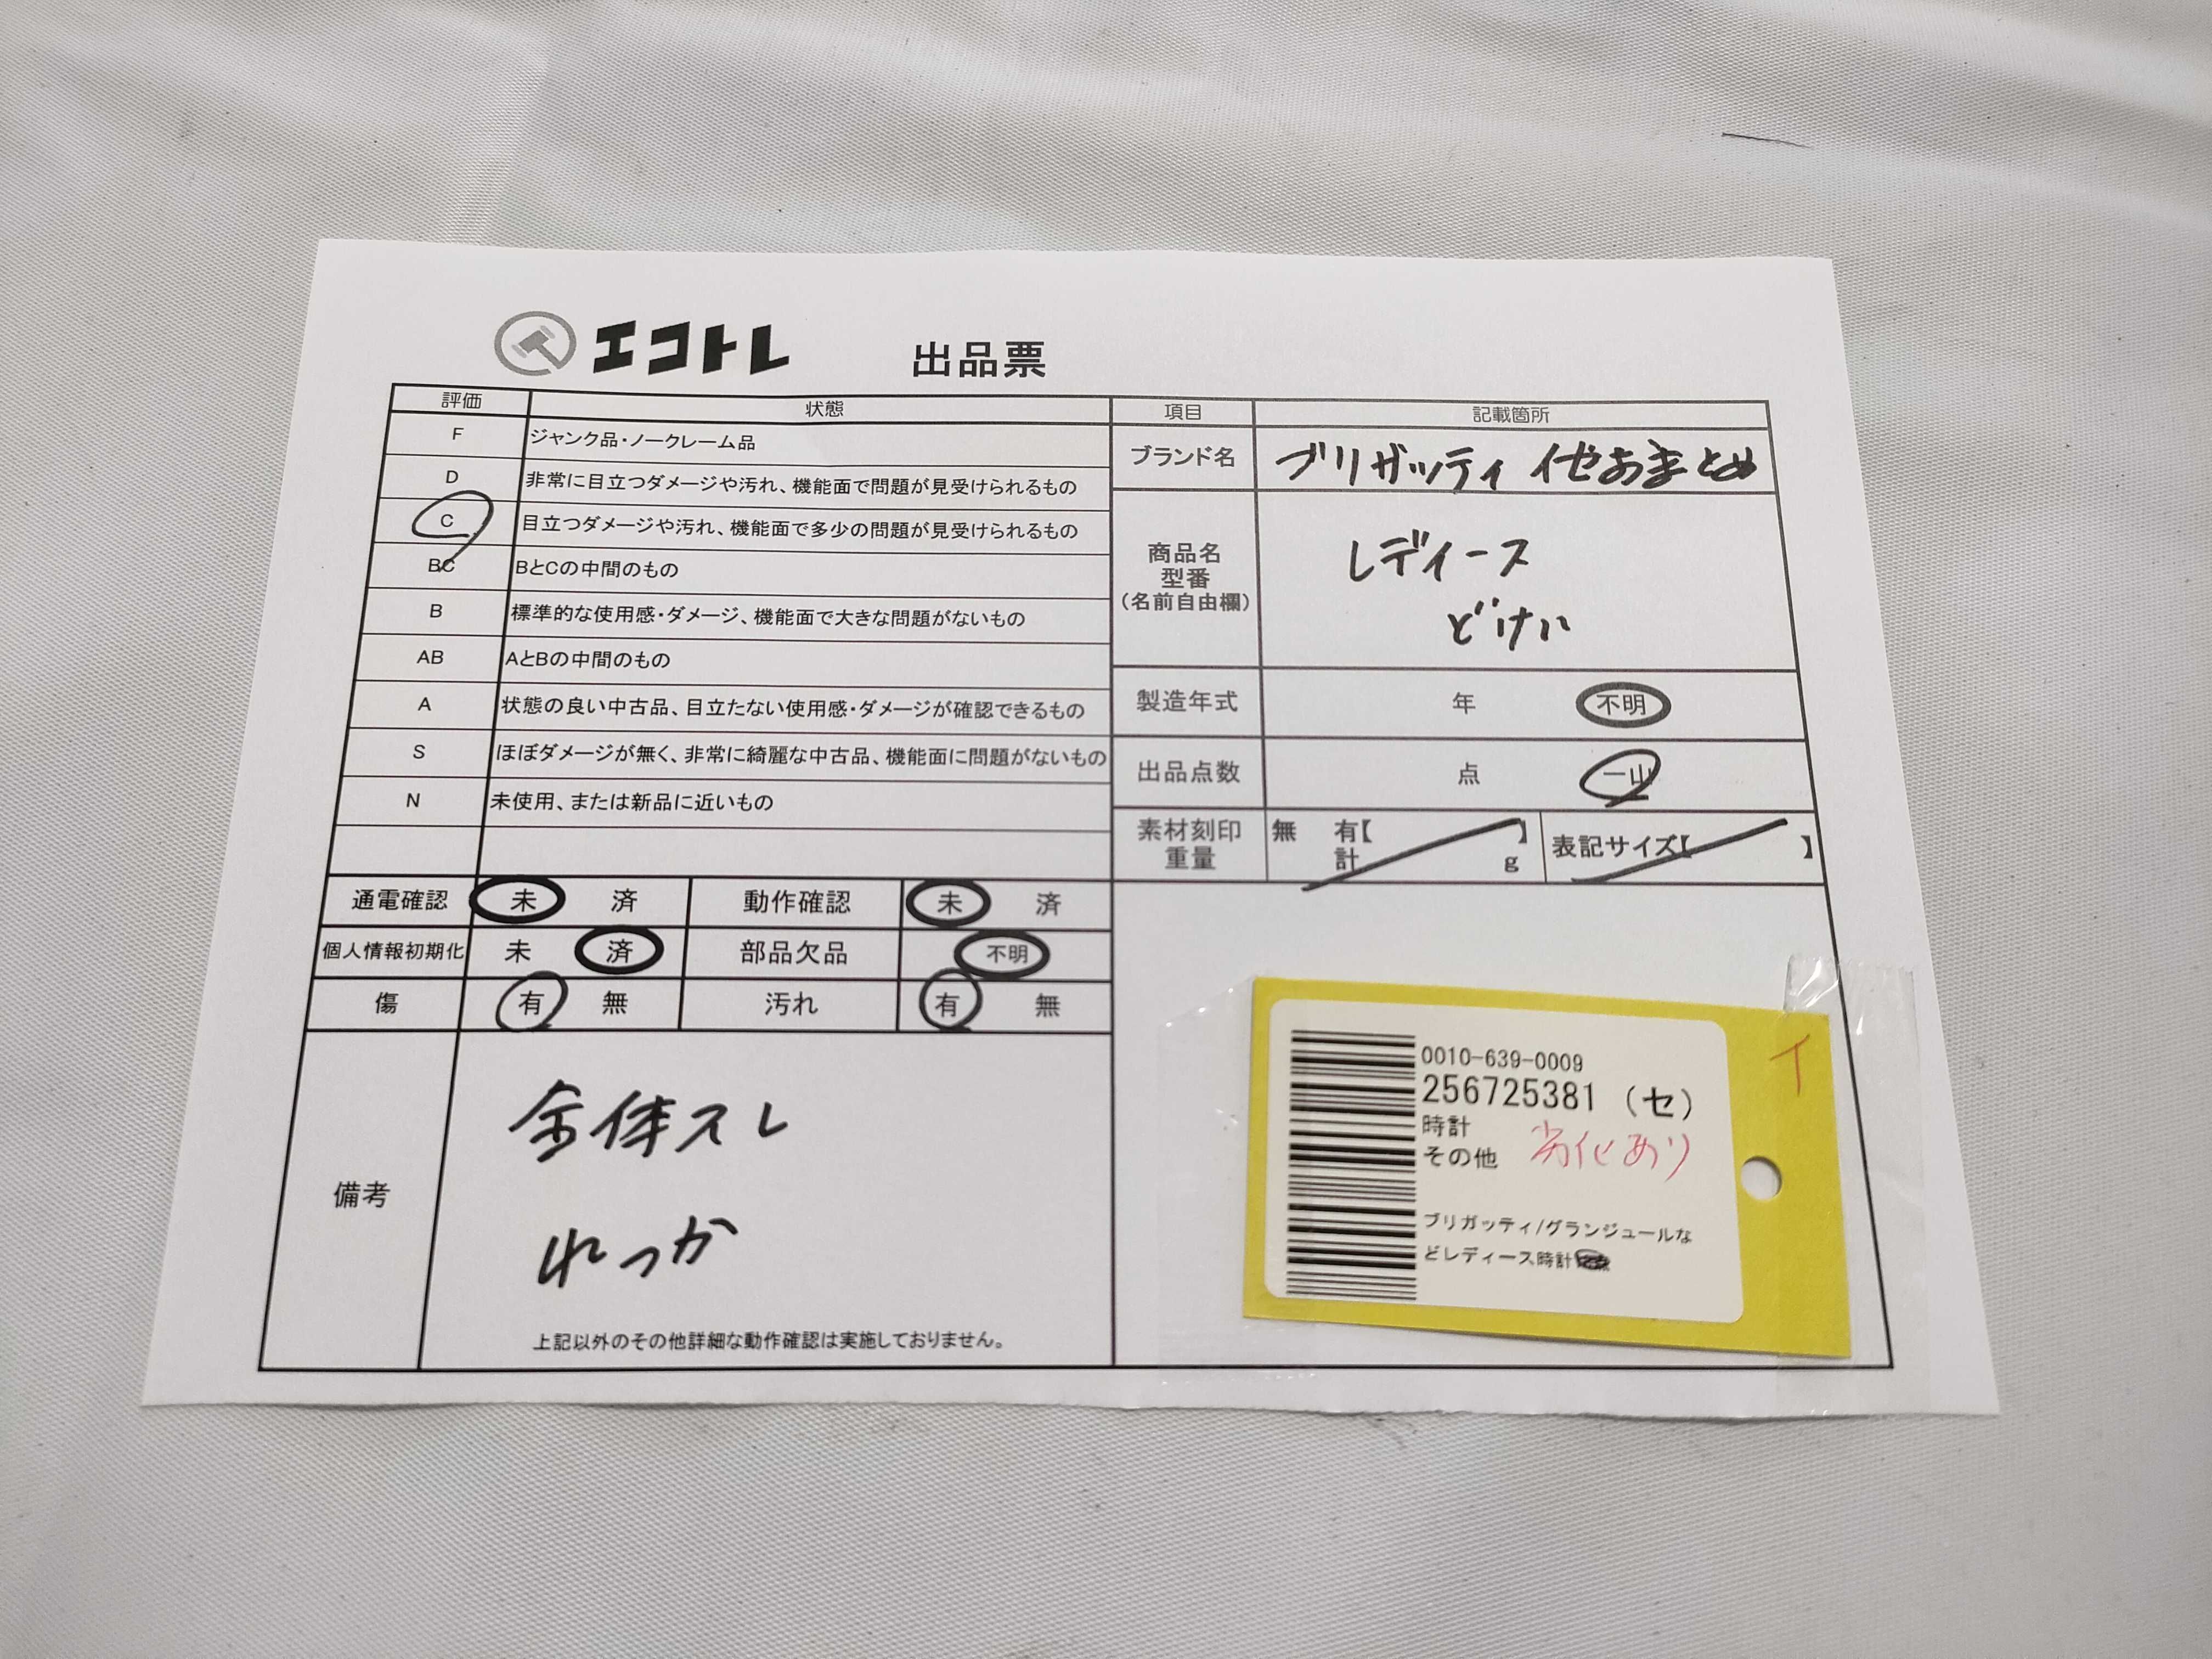 エコトレ 出品票
評価 状態
F ジャンク品・ノークレーム品
D 非常に目立つダメージや汚れ、機能面で問題が見受けられるもの
C 目立つダメージや汚れ、機能面で多少の問題が見受けられるもの
BC BとCの中間のもの
B 標準的な使用感・ダメージ、機能面で大きな問題がないもの
AB AとBの中間のもの
A 状態の良い中古品、目立たない使用感・ダメージが確認できるもの
S ほぼダメージが無く、非常に綺麗な中古品、機能面に問題がないもの
N 未使用、または新品に近いもの
項目 記載箇所
ブランド名 ブリガッティ 他おまとめ
商品名
型番
(名前自由欄)
レディース
どけい
製造年式 年 不明
出品点数 点 一山
素材刻印 無 有【 】 表記サイズ【 】
重量 計 g
通電確認 未 済 動作確認 未 済
個人情報初期化 未 済 部品欠品 不明
傷 有 無 汚れ 有 無
備考
全体スレ
れっか
上記以外のその他詳細な動作確認は実施しておりません。
イ
0010-639-0009
256725381 (セ)
時計
その他 劣化あり
ブリガッティ/グランジュールな
どレディース時計